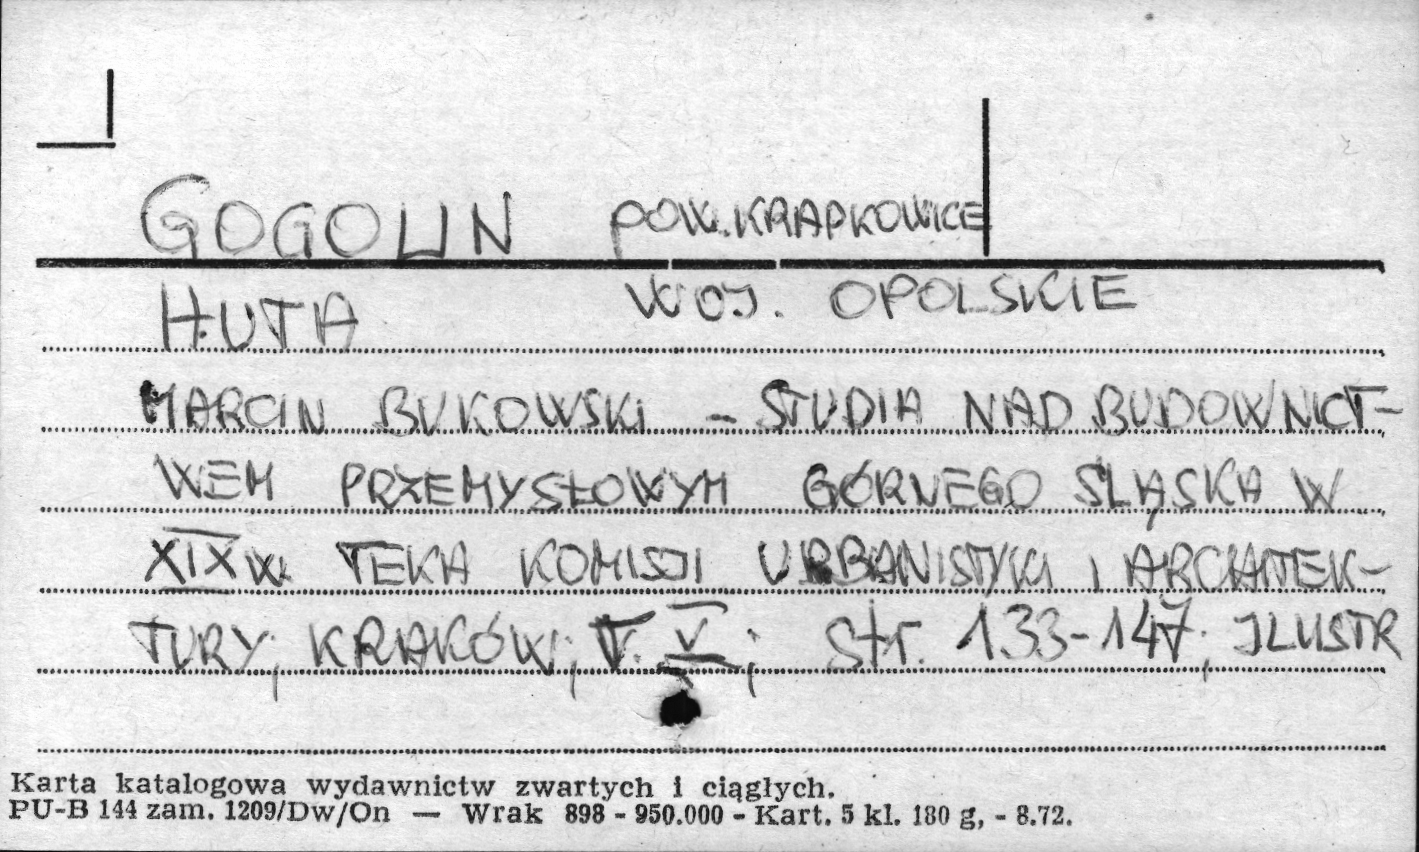 GOGOLIN POW. KRAPKOWICE
HUTA WOJ. OPOLSKIE
MARCIN BUKOWSKI – STUDIA NAD BUDOWNICT-
WEM PRZEMYSŁOWYM GÓRNEGO ŚLĄSKA W
XIX W. TEKA KOMISJI URBANISTYKI I ARCHITEK-
TURY, KRAKÓW, T. V; Str. 133-147, ILUSTR
Karta katalogowa wydawnictw zwartych i ciągłych.
PU-B 144 zam. 1209/Dw/On — Wrak 898 - 950.000 - Kart. 5 kl. 180 g, - 8.72.